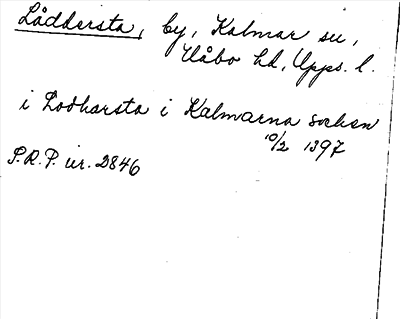 Låddersta, by, Kalmar sn,
Håbo hd, Upps. l.
i Lodharsta i Kalmarna sochen
10/2 1397
S.R.P. nr. 2846